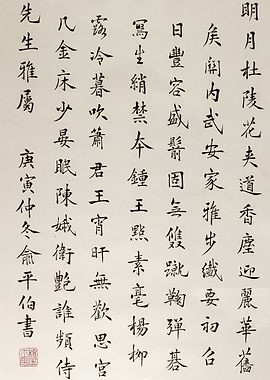 明月杜陵花夾道香塵迎麗華舊
矦關内武安家雅步纖要初召
日豐容盛鬋固无雙蹴鞠彈棊
寫生綃禁本鍾王點素毫楊柳
露冷暮吹簫君王宵旰無歡思宮
几金床少晏眠陳娥衛艷誰頻侍
先生雅屬 庚寅仲冬俞平伯書